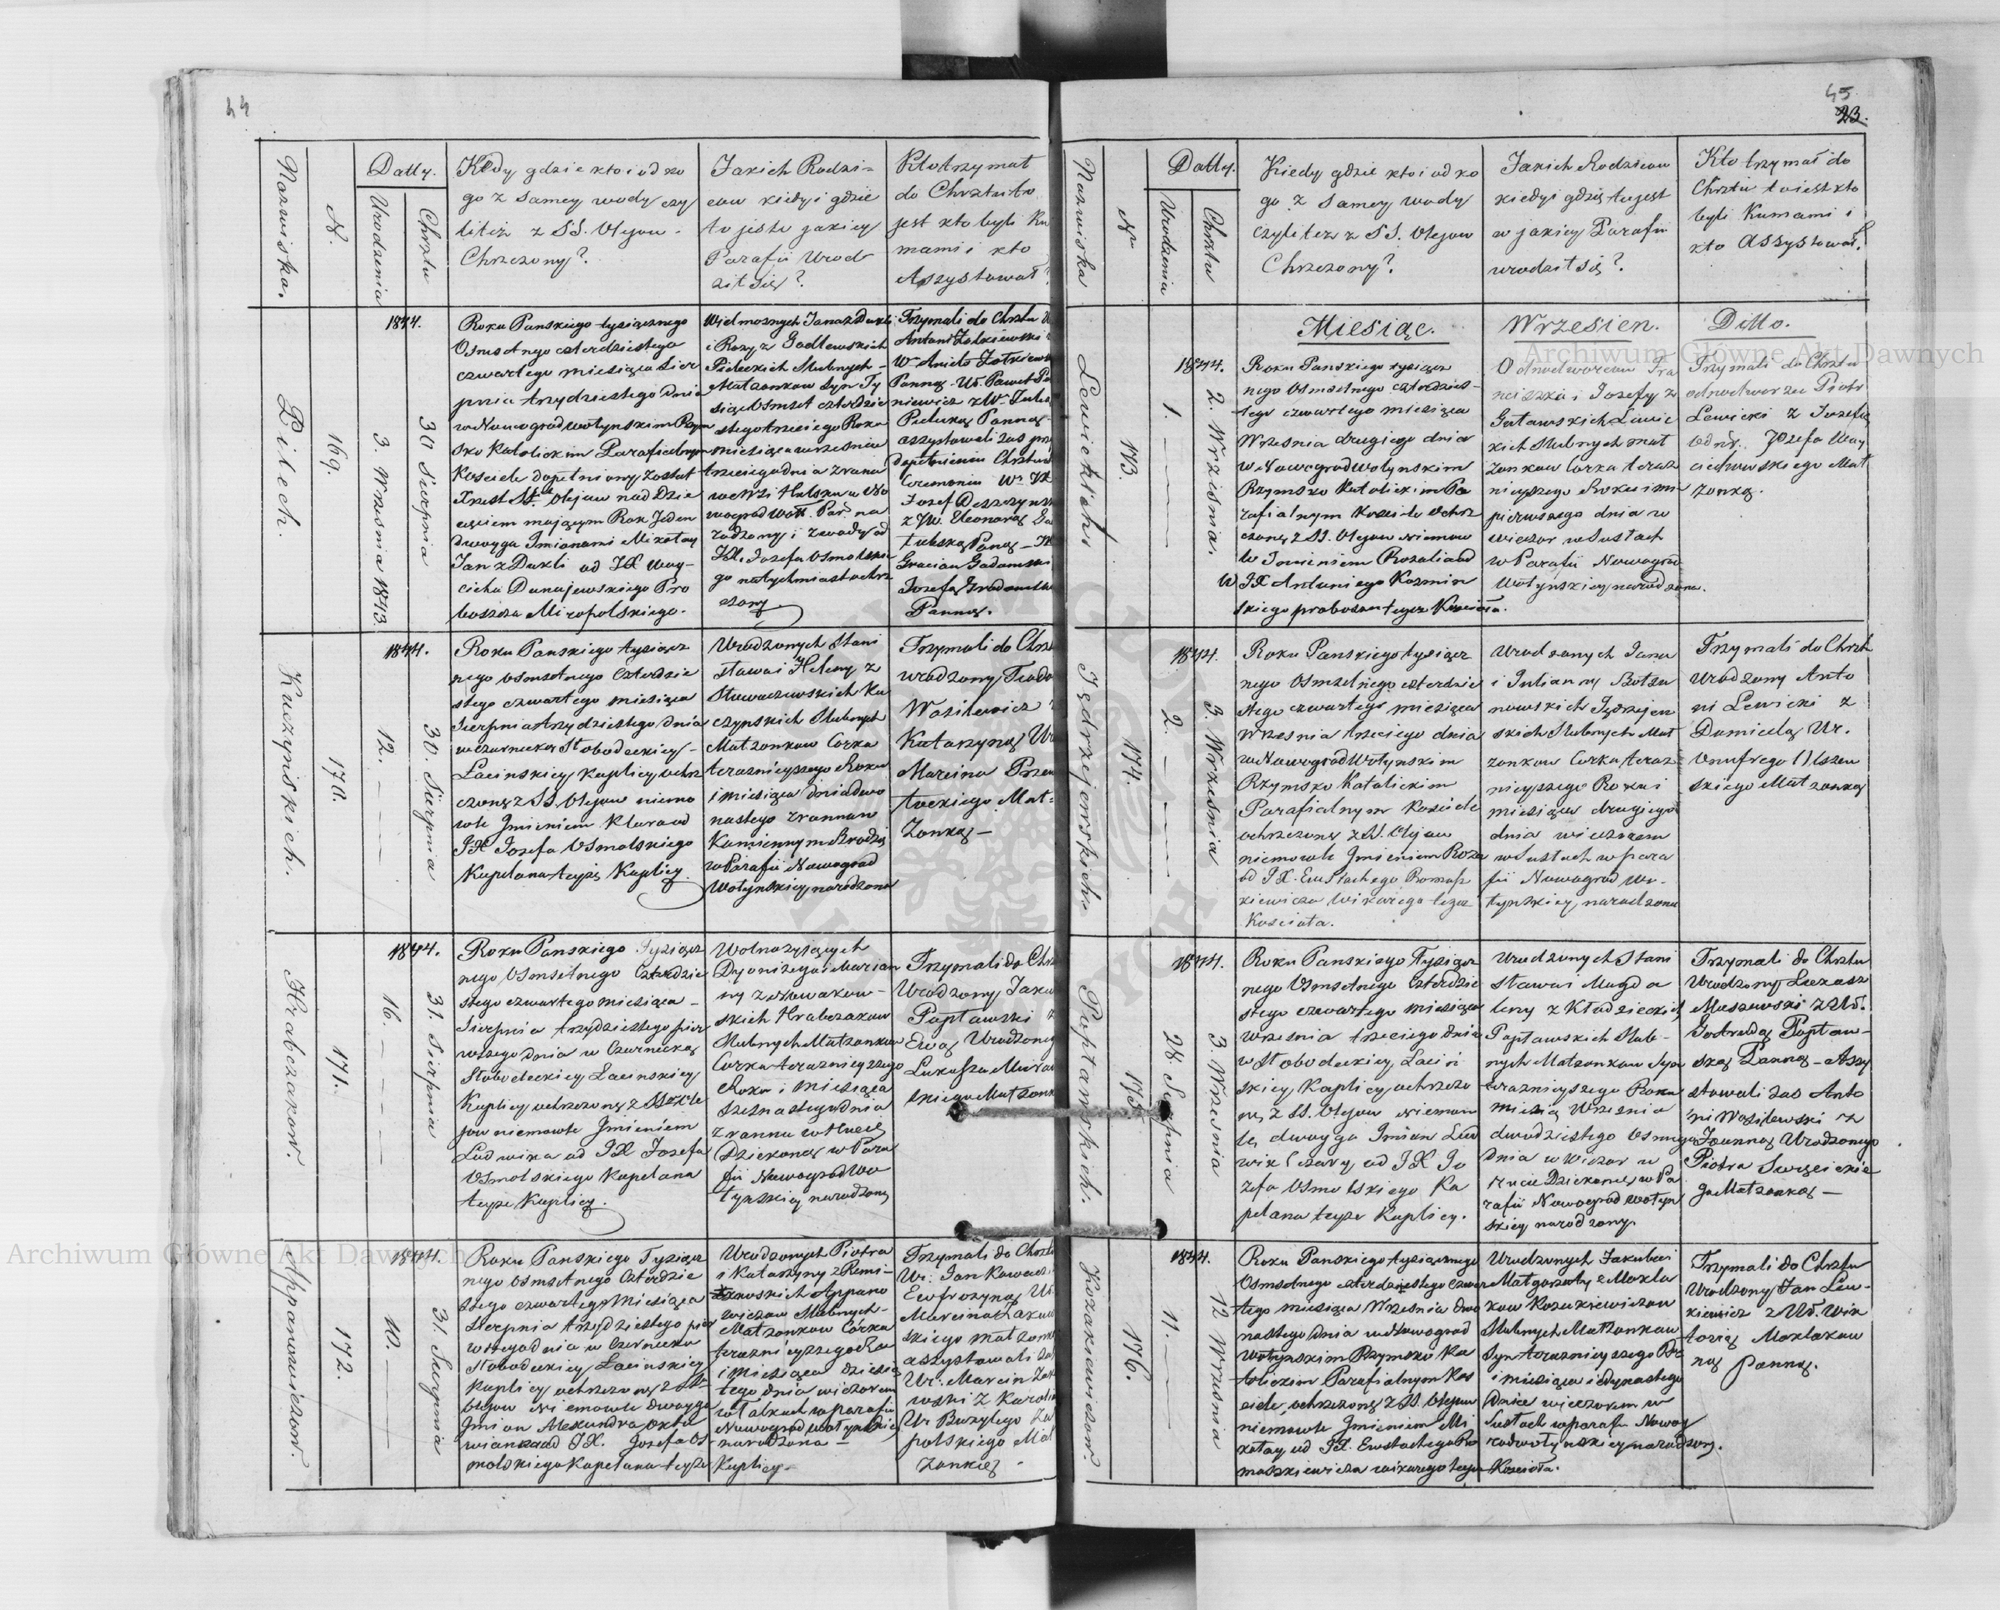 44
Nazwiska.
N.
Datty.
Urodzenia
Chrztu
Kiedy gdzie kto i od ko
go z samey wody czy
liteż z SS. Olejow
Chrzczony?
Jakich Rodzi-
cow kiedy i gdzie
to jest w jakiey
Parafii Urod-
ził się?
Kto trzymał
do Chrztu to
jest kto byli Ku
mami i kto
Assystował?
Pilech.
169.
3. Wrzesnia 1843.
1844.
30 Sierpnia
Roku Panskiego tysiącznego
Osmsetnego czterdziestego
czwartego miesiąca Sier
pnia trzydziestego dnia
w Nowogrodwołynskim Rzym
sko Katolickim Parafialnym
Kosciele dopełniony został
Chrzest SS. Olejow nad Dzie
cięciem mającym Rok Jeden
dwoyga Imionami Mikołay
Jan z Dukli od JX Woy-
ciecha Dunajewskiego Pro
boszcza Miropolskiego.
Wielmoznych Jana z Dukli
i Rozy z Godlewskich
Pieleckich Slubnych
Małzonkow Syn Ty
siąc Osmset czterdzie
stego trzeciego Roku
miesiąca wrzesnia
trzeciego dnia z rana
we Wsi Hulsku w No
wogrodwoł. Par. na
rodzony i z wody od
JX. Jozefa Osmolskie
go natychmiast ochrz
czony
Trzymali do Chrztu
Antoni Zołkiewski
Panną. Ur. Paweł
niewicz z W.
Panną
assystowali zas przy
dopełnieniu Chrztu
Ceremonii
Jozef
z JW. Eleonorą
Panną
Gracian Gadomski
Jozefą
Panną.
Kuczynskich.
170.
12.
1844.
30. Sierpnia
Roku Panskiego tysiącz
nego Osmsetnego Czterdzie
stego czwartego miesiąca
Sierpnia trzydziestego dnia
w Czarnecko Słobodeckiey
Łacinskiey Kaplicy ochrz
czoną z SS. Olejow niemo
wle Imieniem Klara od
JX Jozefa Osmolskiego
Kapelana teyże Kaplicy.
Urodzonych Stani
sława i Heleny z
Ku
czynskich Slubnych
Małzonkow Corka
teraznieyszego Roku
i miesiąca dnia dwu
nastego z ranna w
Kamiennym Brodzie
w Parafii Nowogrod
Wołynskiey narodzona
Trzymali do Chrz
Urodzony Teodo
Wasilewicz
Katarzyną Ur
Marcina
Mał-
zonką
Hrabczakow.
171.
16.
1844.
31. Sierpnia
Roku Panskiego Tysiącz
nego Osmsetnego Czterdzie
stego czwartego miesiąca
Sierpnia trzydziestego pier
wszego dnia w Czarnecko
Słobodeckiey Łacinskiey
Kaplicy ochrzczony z SS. Ole
jow niemowle Imieniem
Ludwika od JX Jozefa
Osmolskiego Kapelana
teyże Kaplicy.
Wolnożyjących
Dyonizego i Marian
ny z Nowakow-
skich Hrabczakow
Slubnych Małzonkow
Corka teraznieyszego
Roku i miesiąca
szesnastego dnia
z ranna w Hucie
Dziekoną w Para
fii Nowogrodwo
łynskiey narodzoną
Trzymali do Chrz
Urodzony Jaku
Popławski
Ewą Urodzoneg
Łukasza
skiego Małzonk
Appanowiczow.
172.
10.
1844.
31. Sierpnia
Roku Panskiego Tysiącz
nego Osmsetnego Czterdzie
stego czwartego Miesiąca
Sierpnia trzydziestego pier
wszego dnia w Czernecko
Słobodeckiey Łacinskiey
Kaplicy ochrzczony z SS.
Olejow Niemowle dwoyga
Imion Alexandra Okta
wianna od JX. Jozefa Os-
molskiego Kapelana teyże
Kaplicy
Urodzonych Piotra
i Katarzyny z
Appano
wiczow Slubnych
Małzonkow Córka
teraznieyszego Ro
i miesiąca dziesią
tego dnia wieczorem
w parafii
Nowogrodwołynskiey
narodzona
Trzymali do Chrztu
Ur. Jan
Eufrozyną Ur
Marcina
skiego małzon
assystowali
Ur. Marcin
z Karoli
Ur Bazylego
polskiego Mał
zonkią
45
23.
Nazwiska
Nr
Datty.
Urodzenia
Chrztu
Kiedy gdzie kto i od ko
go z Samey wody
czyliteż z SS. Olejow
Chrzczony?
Jakich Rodzicow
kiedy i gdzie to jest
w jakiey Parafii
urodził się?
Kto trzymał do
Chrztu to iest kto
byli Kumami i
kto Assystował?
Miesiąc. Wrzesien. Ditto.
Lewickich
173.
1.
1844.
2. Wrzesnia.
Roku Panskiego tysiącz
nego Osmsetnego czterdzies-
tego czwartego miesiąca
Wrzesnia drugiego dnia
w Nowogrodwołynskim
Rzymsko Katolickim Pa
rafialnym Kosciele ochrz
czoną z SS. Olejow niemow
le Imieniem Rozalia od
JX Antoniego Kozmin
skiego proboszcza tegoz Koscioła.
Odnodworcow Fra
nciszka i Jozefy z
Gutowskich Lewic
kich Slubnych mał
zonkow Corka teraz
nieyszego Roku i mi
pierwszego dnia w
wieczor w Sustach
w Parafii Nowogrod
Wołynskiey narodzona.
Trzymali do Chrztu
odnodworzec Piotr
Lewicki z Jozefą
Odnr. Jozefa Woy
ciechowskiego Mał
zonką.
Jędrzejowskich
174.
2.
1844.
3. Wrzesnia
Roku Panskiego tysiącz
nego Osmsetnego czterdzie
stego czwartego miesiąca
Wrzesnia trzeciego dnia
w Nowogrodwołynskim
Rzymsko Katolickim
Parafialnym Kosciele
ochrzczoną z SS. Olejow
niemowle Imieniem Roza
od JX. Eustachego Romasz
kiewicza Wikarego tegoz
Koscioła.
Urodzonych Jana
i Julianny Botza
nowskich Jędrzejew
skich Slubnych Mał
zonkow Corka teraz
nieyszego Roku i
miesiąca drugiego
dnia wieczorem
w Sustach w para
fii Nowogrod Wo-
łynskiey narodzona
Trzymali do Chrzt
Urodzony Anto
ni Lewicki z
Danielą Ur.
Onufrego Olszew
skiego Małzonką
Popławskich.
175.
28 Sierpnia
1844.
3. Wrzesnia
Roku Panskiego Tysiącz
nego Osmsetnego Czterdzie
stego czwartego miesiąca
Wrzesnia trzeciego dnia
w Słobodeckiey Łacin
skiey Kaplicy ochrzczo
ną z SS. Olejow niemow
lę dwoyga Imion Lud
wik Cezary od JX Jo
zefa Osmolskiego Ka
pelana teyże Kaplicy.
Urodzonych Stani
sława i Magda
leny z Kłodzieckich
Popławskich Slub-
nych Małzonkow Syn
teraznieyszego Roku
miesią Wrzesnia
dwudziestego Osmego
Dnia w Wieczor w
Hucie Dziekoney w Pa
rafii Nowogrodwołyn
skiey narodzony.
Trzymali do Chrztu
Urodzony Łukasz
Maszewski z Ur.
Gotrudą Popław-
ską Panną - Assy
stowali zas Anto
ni Wasilewski z
Joanną Urodzonego
Piotra
go Małzonką
Kozakiewiczow.
176.
11.
1844.
12 Wrzesnia
Roku Panskiego tysiącznego
Osmsetnego czterdziestego czwar
tego miesiąca Wrzesnia dwu
nastego dnia w Nowogrod
wołynskim Rzymsko Ka
tolickim Parafialnym Kos
ciele ochrzczony z SS. Olejow
niemowle Imieniem Mi
kołay od JX. Eustachego Ro
maszkiewicza wikarego tegoz
Koscioła.
Urodzonych Jakuba i
Małgorzaty z Mokla
kow Kozakiewiczow
Slubnych Małzonkow
Syn teraznieyszego Ro
i miesiąca iedynastego
Dnia wieczorem w
Sustach w parafii Nowog
rodwołynskiey narodzony.
Trzymali do Chrztu
Urodzony Jan Lew-
kiewicz z Ur. Wik
torią Moklakow
ną panną.
Archiwum Główne Akt Dawnych
Archiwum Główne Akt Dawnych